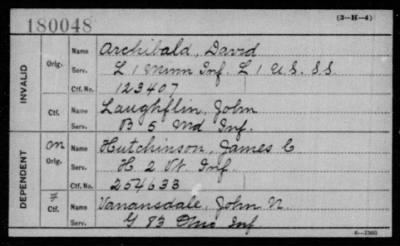 180048 (3-H-4)
INVALID
Orig.
Name Archibald, David
Serv. L 1 Minn Inf. L 1 U.S. S.S.
Ctf. No. 123407
Ctf.
Name Laughflin, John
Serv. B 5 Md Inf.
DEPENDENT
m
Orig.
Name Hutchinson, James C
Serv. H 2 Vt. Inf.
Ctf. No. 254633
Ctf.
Name Vanansdale, John N.
Serv. G 83 Ohio Inf
6-2360